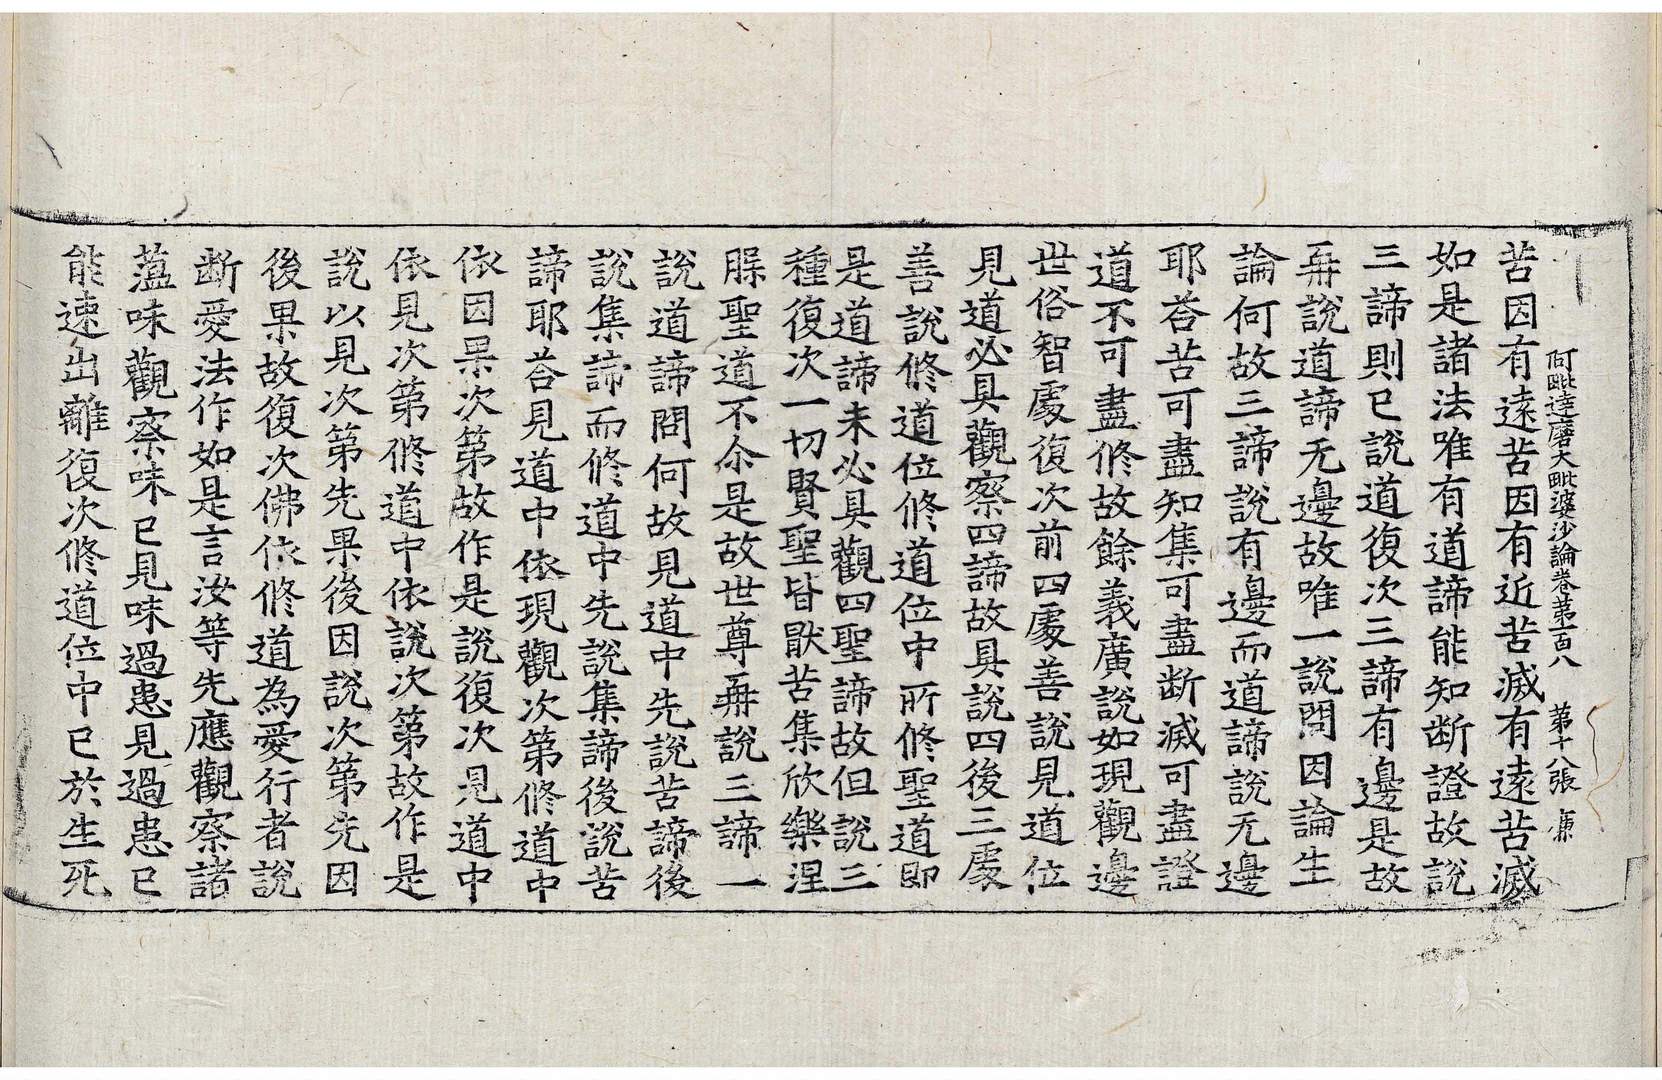 阿毗達磨大毗婆沙論卷第一百八　第十八張　廉
苦因有遠苦因有近苦滅有遠苦滅
如是諸法唯有道諦能知断證故說
三諦則已說道復次三諦有邊是故
再說道諦无邊故唯一說問因論生
論何故三諦說有邊而道諦說无邊
耶荅苦可盡知集可盡断滅可盡證
道不可盡修故餘義廣說如現觀邊
世俗智處復次前四處善說見道位
見道必具觀察四諦故具說四後三處
善說修道位修道位中所修聖道即
是道諦未必具觀四聖諦故但說三
種復次一切賢聖皆猒苦集欣樂涅
槃聖道不尒是故世尊再說三諦一
說道諦問何故見道中先說苦諦後
說集諦而修道中先說集諦後說苦
諦耶荅見道中依現觀次第修道中
依因果次第故作是說復次見道中
依見次第修道中依說次第故作是
說以見次第先果後因說次第先因
後果故復次佛依修道為愛行者說
断愛法作如是言汝等先應觀察諸
薀味觀察味已見味過患見過患已
能速出離復次修道位中已於生死